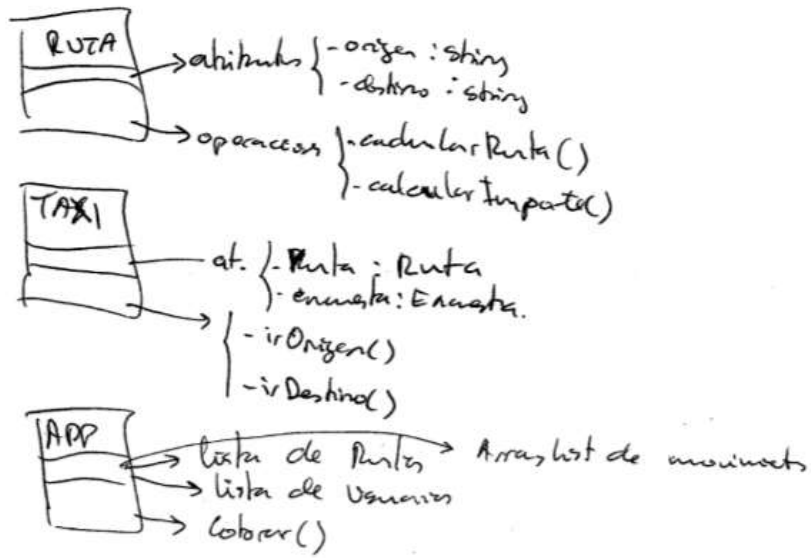 RUTA
atributos - origen : string
- destino : string
operaciones - calcularRuta()
- calcularImporte()
TAXI
at. - Ruta : Ruta
- encuesta : Encuesta.
- irOrigen()
- irDestino()
APP
lista de Rutas Array list de
lista de Usuarios
Cobrar()